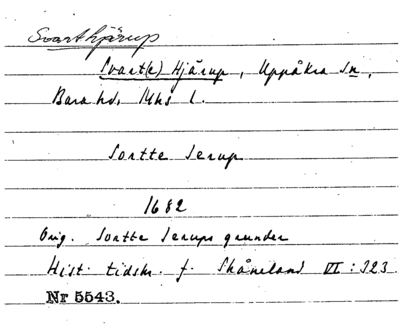 Svarthjärup
Svart(e) Hjärup, Uppåkra sn,
Bara hd, Mhs l.
Sortte Jerup
1682
Orig. Sortte Jerups grunder
Hist. tidskr. f. Skåneland VI : 323
Nr 5543.